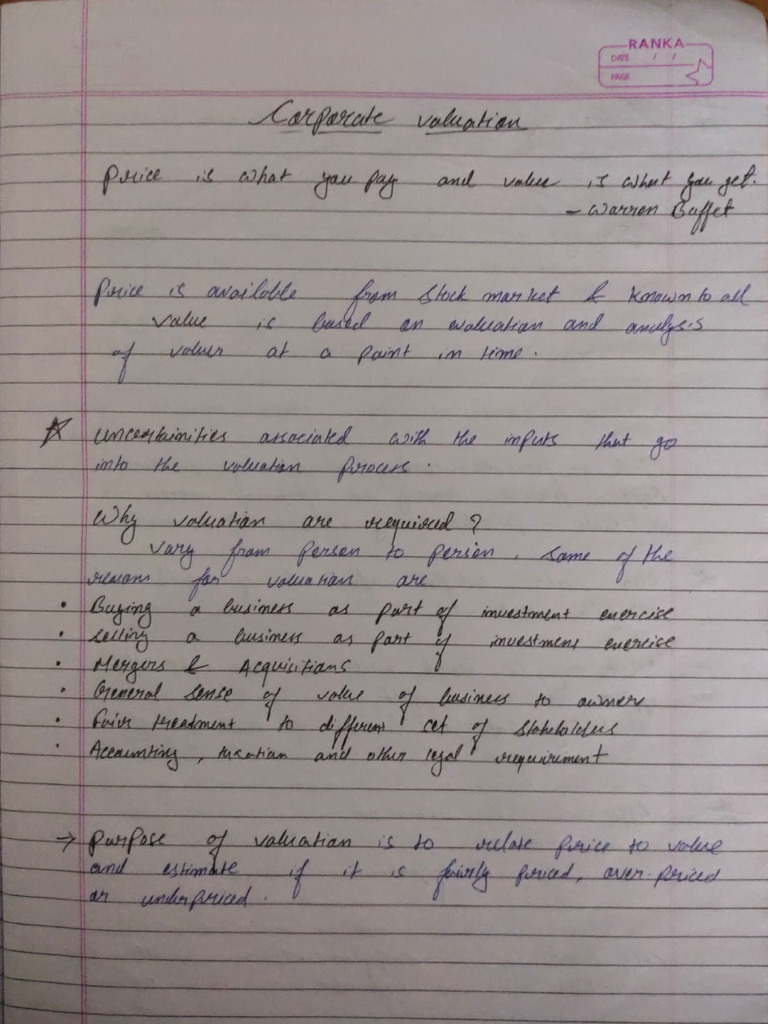 RANKA
DATE / /
PAGE
Corporate valuation
Price is what you pay and value is what you get.
- Warren Buffet
Price is available from stock market & known to all
value is based on evaluation and analysis
of values at a point in time.
uncertainities associated with the inputs that go
into the valuation process.
Why valuation are required?
vary from person to person, some of the
reasons for valuation are
• Buying a business as part of investment exercise
• selling a business as part of investment exercise
• Mergers & Acquisitions
• General sense of value of business to owners
• Fair treatment to different set of stakeholders
• Accounting, taxation and other legal requirement
→ Purpose of valuation is to relate price to value
and estimate if it is fairly priced, over-priced
or underpriced.